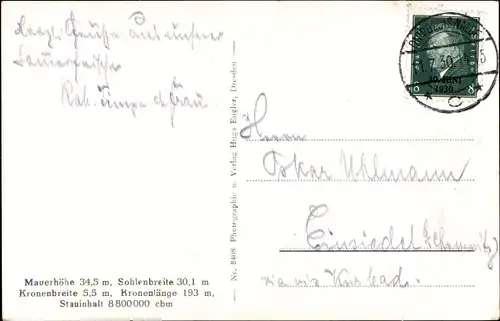 Herzl. Grüße aus unserer
Sommerfrische
Rob. Timpe & Frau
Mauerhöhe 34,5 m, Sohlenbreite 30,1 m
Kronenbreite 5,5 m, Kronenlänge 193 m,
Stauinhalt 8 800 000 cbm
Nr. 8408. Photographie u. Verlag Hugo Engler, Dresden
30. JUNI
1930
8 8
7. 30
C
Herrn
Oskar Uhlmann
Einsiedel b/Chemnitz